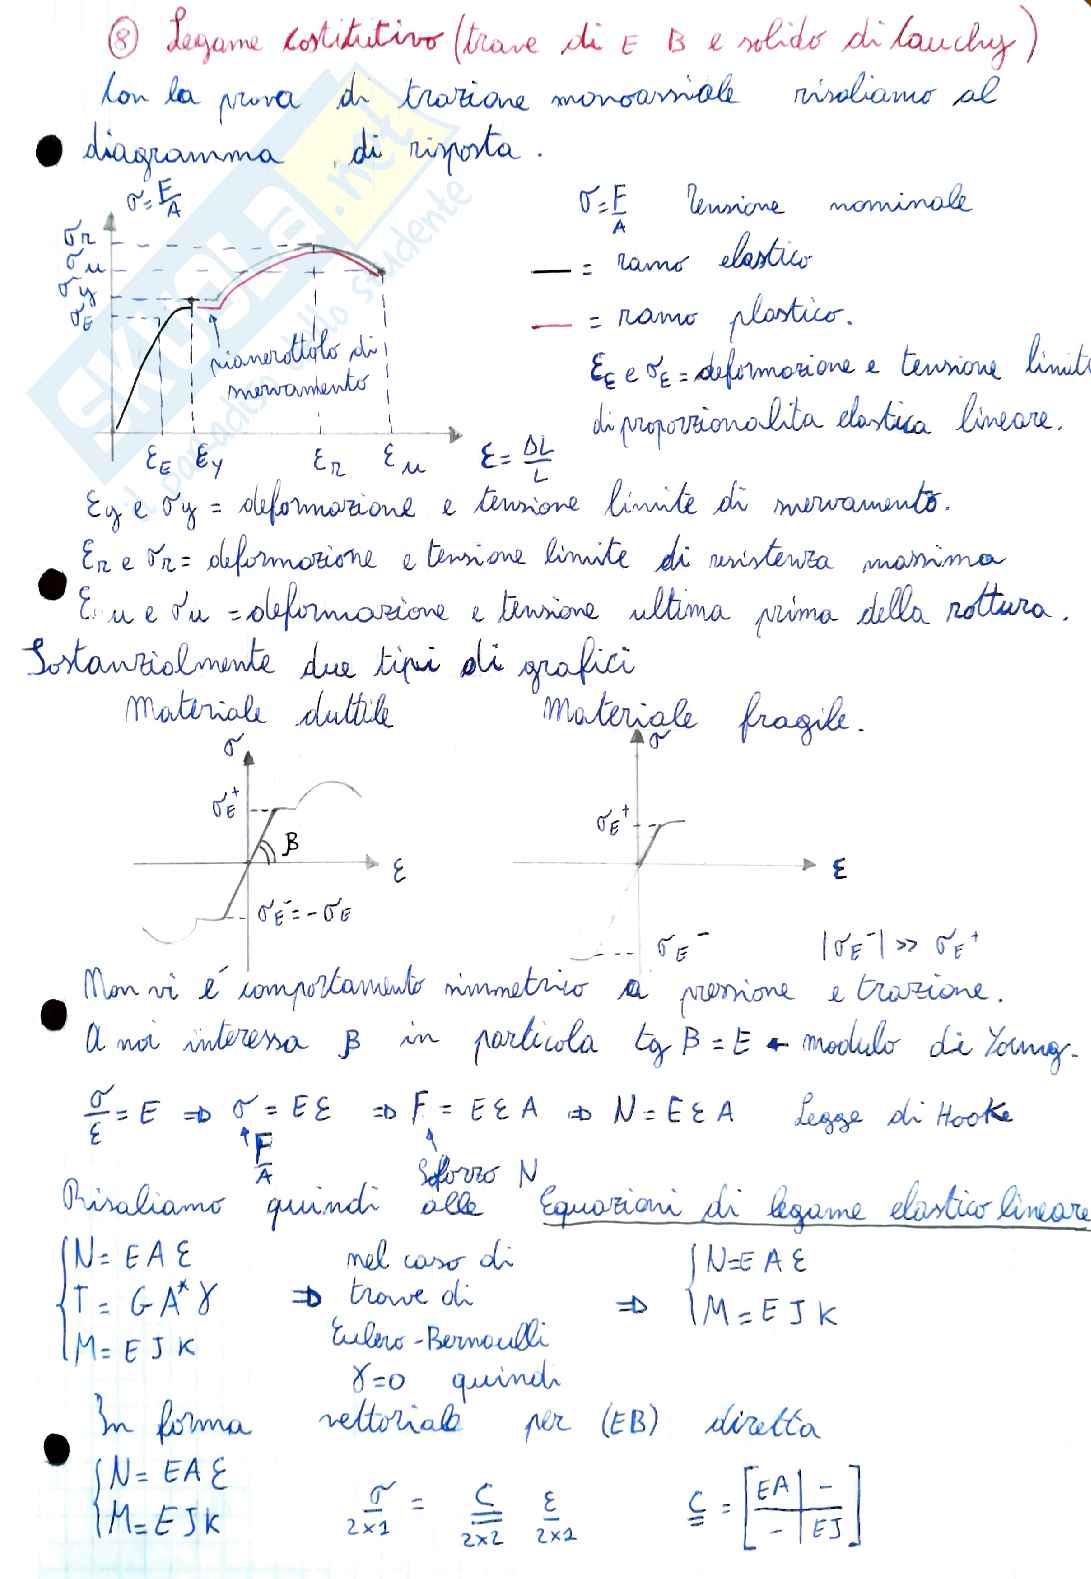 ⑧ Legame costitutivo (trave di E B e solido di Cauchy)
Con la prova di trazione monoassiale risaliamo al
diagramma di risposta.
σ = F/A
σ = F/A Tensione nominale
σr
σu
σy
σE
— = ramo elastico
— = ramo plastico.
pianerottolo di
snervamento
εE e σE = deformazione e tensione limite
di proporzionalita elastica lineare.
εE εy εr εu ε = ΔL/L
εy e σy = deformazione e tensione limite di snervamento.
εr e σr = deformazione e tensione limite di resistenza massima
εu e σu = deformazione e tensione ultima prima della rottura.
Sostanzialmente due tipi di grafici
Materiale duttile Materiale fragile.
σ σ
σE⁺ σE⁺
β
ε ε
σE⁻ = -σE
σE⁻ |σE⁻| >> σE⁺
Non vi é comportamento simmetrico a pressione e trazione.
A noi interessa β in particola tg β = E ← modulo di Young.
σ/ε = E ⇒ σ = E ε ⇒ F = E ε A ⇒ N = E ε A Legge di Hooke
F/A
Sforzo N
Risaliamo quindi alle Equazioni di legame elastico lineare
{ N = E A ε
T = G A* γ
M = E J K
⇒ nel caso di
trave di
Eulero-Bernoulli
γ = 0 quindi
⇒ { N = E A ε
M = E J K
In forma vettoriale per (EB) diretta
{ N = E A ε
M = E J K
σ = C ε
2x1 2x2 2x1
C = [ EA | -
- | EJ ]
SKUOLA.net
il paradiso dello studente